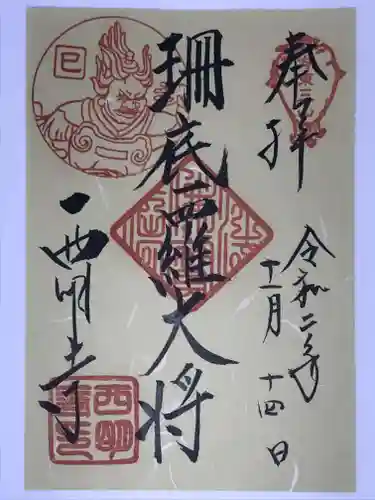 奉拝
令和二年
十一月十四日
珊底羅大将
西明寺
巳